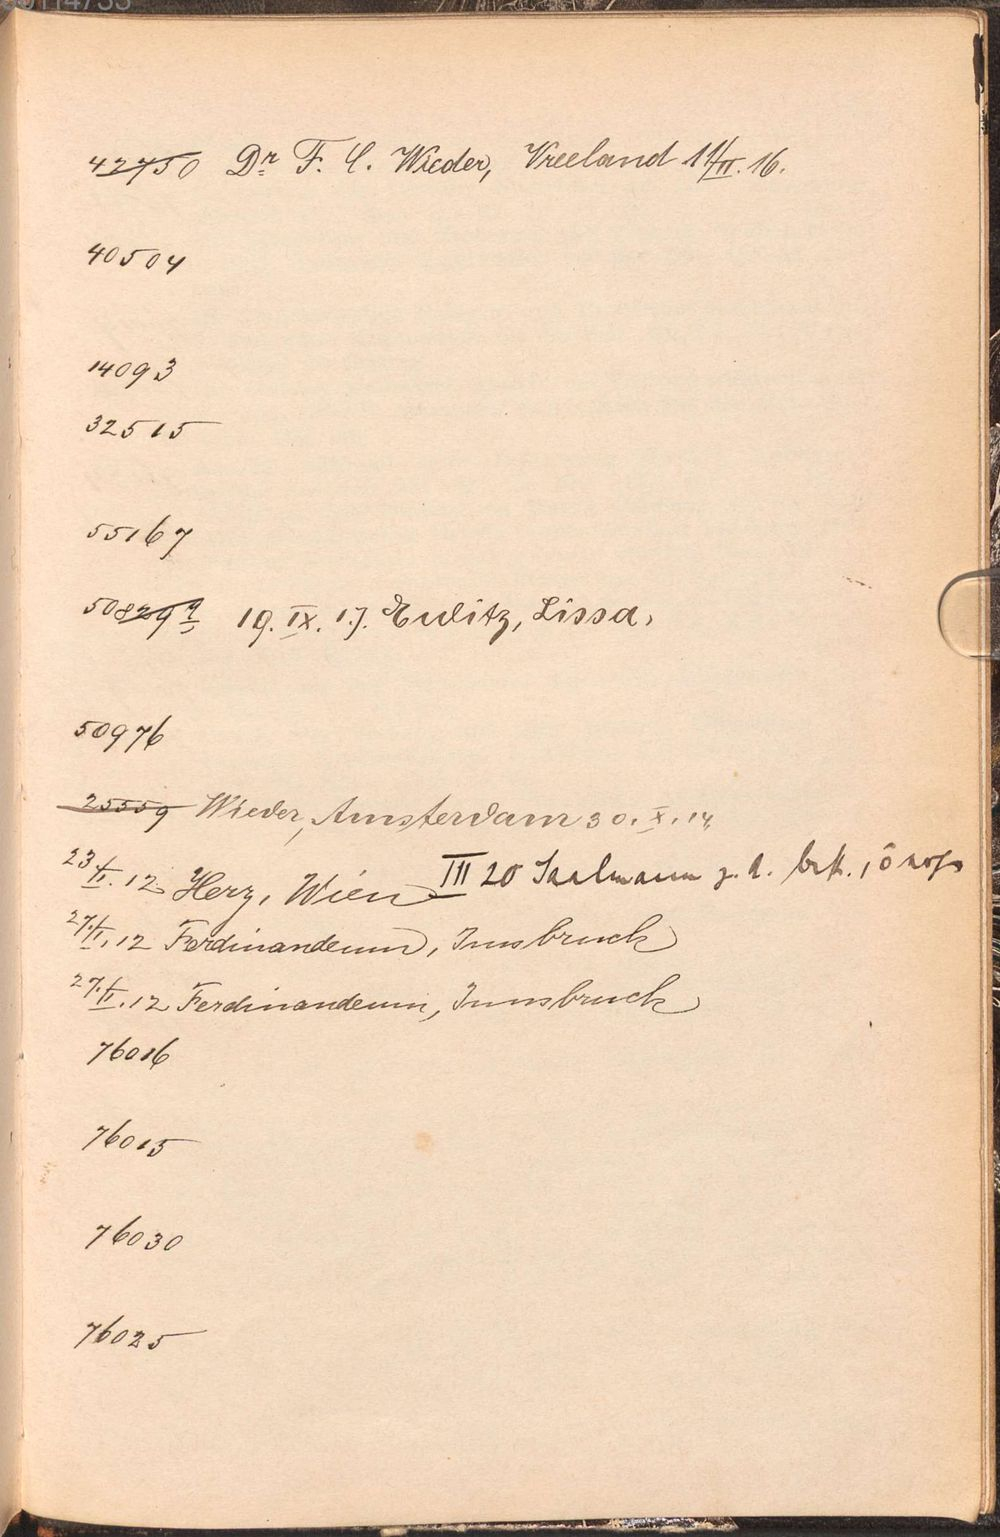 42750 Dr. F. C. Wieder, Vreeland 11/III. 16.
40504
14093
32515
55167
50829 19. IX. 17. Eulitz, Lissa.
50976
25559 Wieder, Amsterdam 30. X. 14.
23/II. 12 Herz, Wien III 20 Saalmann
27./II. 12 Ferdinandeum, Innsbruck
27./II. 12 Ferdinandeum, Innsbruck
76016
76015
76030
76025